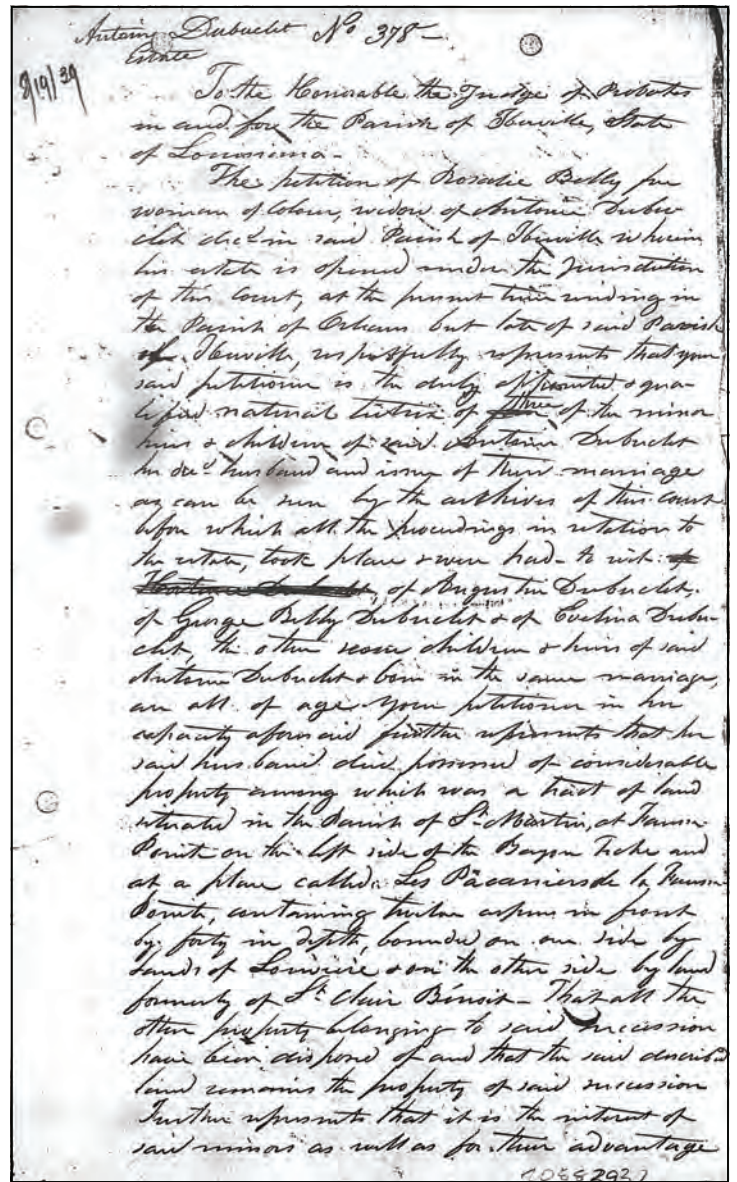 Antoine Dubuclet No 378 -
Estate
8/19/39
To the Honorable the Judge of Probates
in and for the Parish of Iberville, State
of Louisiana -
The petition of Rosalie Belly free
woman of Colour, widow of Antoine Dubu
clet decd in said Parish of Iberville wherein
his estate is opened under the Jurisdiction
of this Court, at the present time residing in
the Parish of Orleans but late of said Parish
of Iberville, respectfully represents that your
said petitioner is the duly appointed & qua-
lified natural tutrix of three of the minor
heirs & children of said Antoine Dubuclet
her decd husband and issue of their marriage
as can be seen by the archives of this Court
before which all the proceedings in relation to
the estate, took place & were had - to wit:
Hortense Dubuclet, of Augustin Dubuclet,
of George Belly Dubuclet & of Evelina Dubu-
clet, the other children & heirs of said
Antoine Dubuclet & born in the same marriage,
are all of age. Your petitioner in her
capacity aforesaid further represents that her
said husband died possessed of considerable
property among which was a tract of land
situated in the Parish of St Martin, at Fausse
Pointe on the left side of the Bayou Teche and
at a place called Les Pacaniers de la Fausse
Pointe, containing twelve arpens in front
by forty in depth, bounded on one side by
lands of & on the other side by land
formerly of St Clair Bénoit - That all the
other property belonging to said succession
have been disposed of and that the said described
land remains the property of said succession
Further represents that it is the interest of
said minors as well as for their advantage